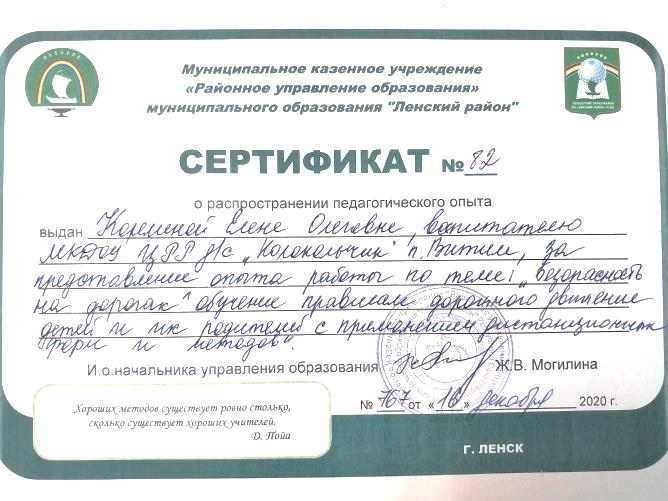 Муниципальное казенное учреждение
«Районное управление образования»
муниципального образования "Ленский район"
СЕРТИФИКАТ №82
о распространении педагогического опыта
выдан Корешной Елене Олеговне, воспитателю
МКДОУ ЦРР д/с „Колокольчик" п. Витим, за
представление опыта работы по теме: „Безопасность
на дорогах" обучение правилам дорожного движение
детей и их родителей с применением дистанционных
форм и методов".
И.о.начальника управления образования Ж.В. Могилина
№ 767 от «16» декабря 2020 г.
Хороших методов существует ровно столько,
сколько существует хороших учителей.
Д. Пойа
г. ЛЕНСК